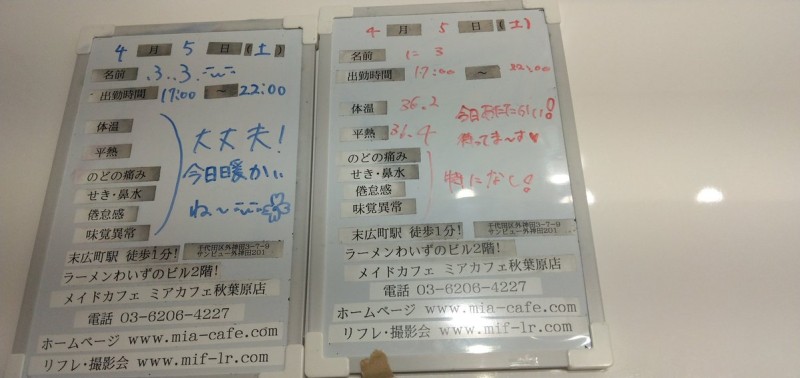 4 月 5 日 (土)
名前 ふ.3.
出勤時間 17:00 ~ 22:00
体温
平熱
のどの痛み
せき・鼻水
倦怠感
味覚異常
大丈夫!
今日暖かい
ね~
末広町駅 徒歩1分!
千代田区外神田3-7-9
サンビュー外神田201
ラーメンわいずのビル2階!
メイドカフェ ミアカフェ秋葉原店
電話 03-6206-4227
ホームページ www.mia-cafe.com
リフレ・撮影会 www.mif-lr.com
4 月 5 日 (土)
名前 に 3
出勤時間 17:00 ~ 22:00
体温 36.2
平熱 36.4
今日あたたかい!
待ってまーす♥
のどの痛み
せき・鼻水
倦怠感
味覚異常
特になし!
末広町駅 徒歩1分!
千代田区外神田3-7-9
サンビュー外神田201
ラーメンわいずのビル2階!
メイドカフェ ミアカフェ秋葉原店
電話 03-6206-4227
ホームページ www.mia-cafe.com
リフレ・撮影会 www.mif-lr.com